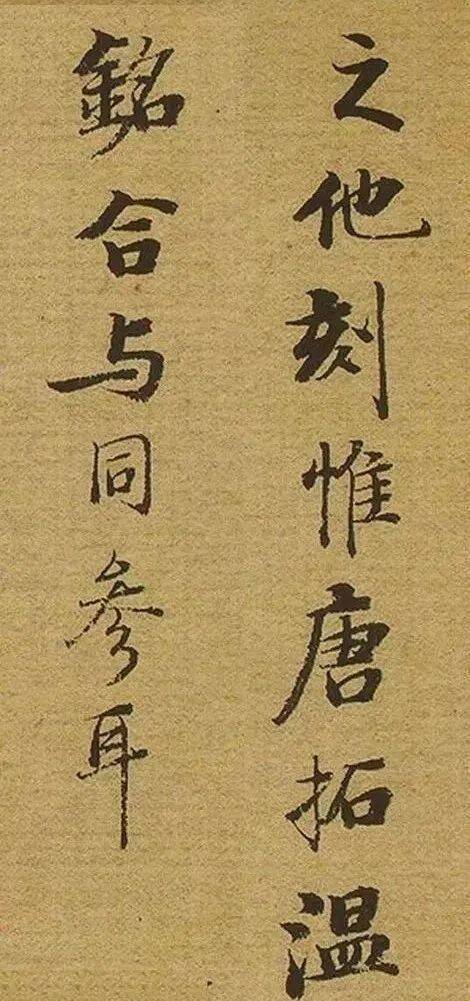 之他刻惟唐拓温
銘合与同参耳